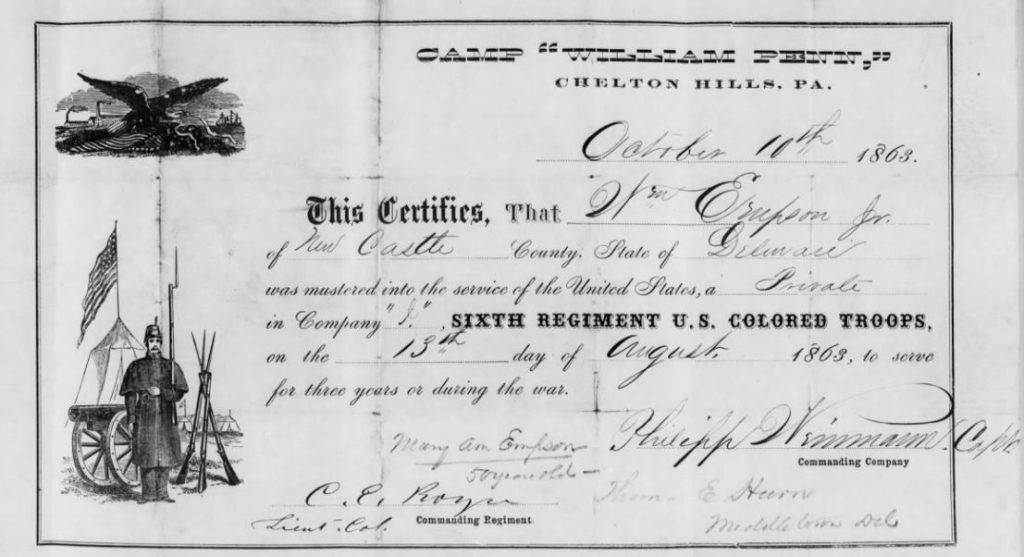 CAMP "WILLIAM PENN,"
CHELTON HILLS, PA.
October 10th 1863.
This Certifies, That Wm Empson Jr.
of New Castle County, State of Delwaie
was mustered into the service of the United States, a Private
in Company "I", SIXTH REGIMENT U.S. COLORED TROOPS,
on the 13th day of August, 1863, to serve
for three years or during the war.
Mary Ann Empson
50 years old
Philipp Weinmann Capt.
Commanding Company
C. E. Royce
Lieut. Col. Commanding Regiment.
Thomas E Hurn
Middletown Del